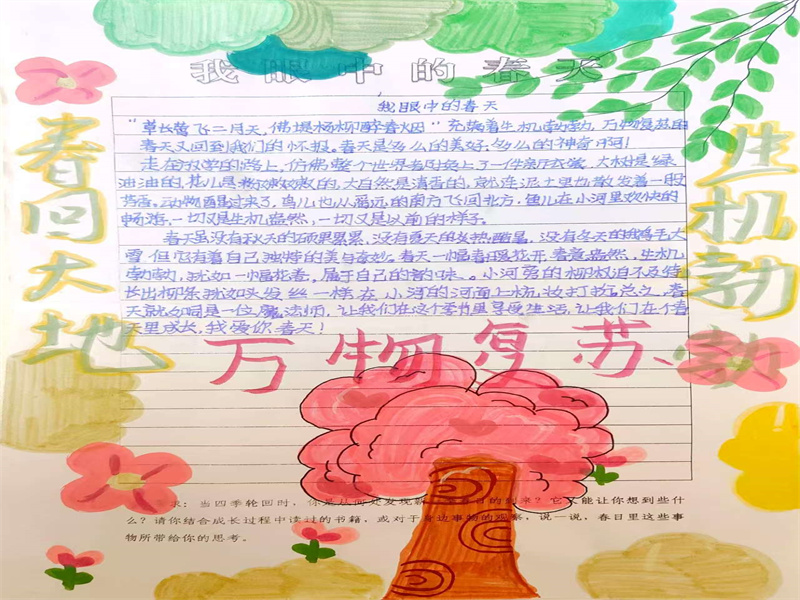 我眼中的春天
春回大地
生机勃勃
我眼中的春天
“草长莺飞二月天，佛堤杨柳醉春烟”充满着生机勃勃，万物复苏的
春天又回到我们的怀抱。春天是多么的美好，多么的神奇啊！
走在放学的路上，仿佛整个世界都披上了一件亲庄衣，大树是绿
油油的，花儿是粉嫩嫩的，大自然是清香的，就连泥土里也散发着一股
芳香，动物醒过来了，鸟儿也从遥远的南方飞回北方，鱼儿在小河里欢快的
畅游，一切又是生机盎然，一切又是以前的样子。
春天虽没有秋天的硕果累累，没有夏天的炎热酷暑，没有冬天的鹅毛大
雪，但它有着自己独特的美与奇妙。春天一幅春暖花开，春意盎然，生机
勃勃，就如一幅花卷，属于自己的韵味。小河旁的柳枝迫不及待
长出柳条，就如头发丝一样在小河的河面上梳妆打扮。总之，春
天就如同是一位魔法师，让我们在这个季节里享受生活，让我们在个春
天里成长，我爱你，春天！
万物复苏
求：当四季轮回时，你是从何处发现新 春日的到来？它又能让你想到些什
么？请你结合成长过程中读过的书籍，或对于身边事物的观察，说一说，春日里这些事
物所带给你的思考。